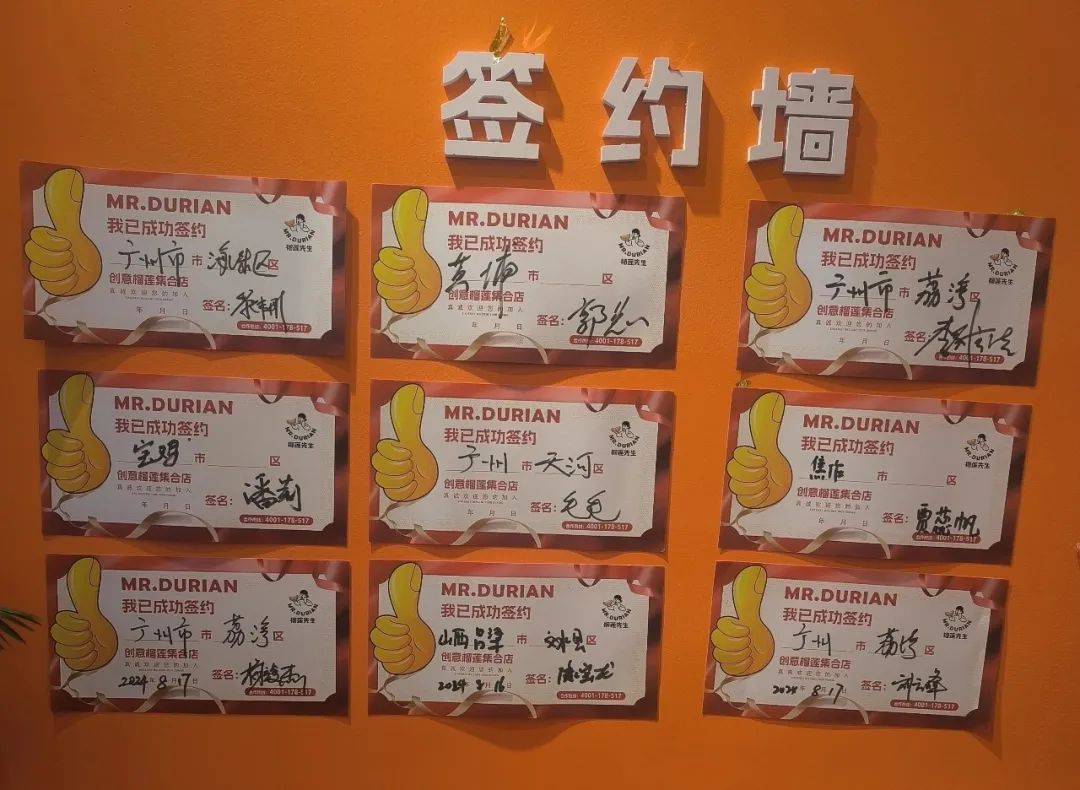 签约墙
MR.DURIAN
我已成功签约
广州市 市 海珠区 区
创意榴莲集合店
真诚欢迎您的加入
签名:
年 月 日
合作热线:4001-178-517
MR.DURIAN
榴莲先生
MR.DURIAN
我已成功签约
黄埔 市 区
创意榴莲集合店
真诚欢迎您的加入
签名:郭
年 月 日
合作热线:4001-178-517
MR.DURIAN
榴莲先生
MR.DURIAN
我已成功签约
广州市 市 荔湾 区
创意榴莲集合店
真诚欢迎您的加入
签名:
年 月 日
合作热线:4001-178-517
MR.DURIAN
榴莲先生
MR.DURIAN
我已成功签约
宝鸡 市 区
创意榴莲集合店
真诚欢迎您的加入
签名:潘莉
年 月 日
合作热线:4001-178-517
MR.DURIAN
榴莲先生
MR.DURIAN
我已成功签约
广州 市 天河 区
创意榴莲集合店
真诚欢迎您的加入
签名:毛毛
年 月 日
合作热线:4001-178-517
MR.DURIAN
榴莲先生
MR.DURIAN
我已成功签约
焦作 市 区
创意榴莲集合店
真诚欢迎您的加入
签名:贾蕊帆
年 月 日
合作热线:4001-178-517
MR.DURIAN
榴莲先生
MR.DURIAN
我已成功签约
广州市 市 荔湾 区
创意榴莲集合店
真诚欢迎您的加入
签名:
2024年8月17日
合作热线:4001-178-517
MR.DURIAN
榴莲先生
MR.DURIAN
我已成功签约
山西吕梁 市 文水县 区
创意榴莲集合店
真诚欢迎您的加入
签名:
2024年8月16日
合作热线:4001-178-517
MR.DURIAN
榴莲先生
MR.DURIAN
我已成功签约
广州 市 荔湾 区
创意榴莲集合店
真诚欢迎您的加入
签名:
2024年8月17日
合作热线:4001-178-517
MR.DURIAN
榴莲先生